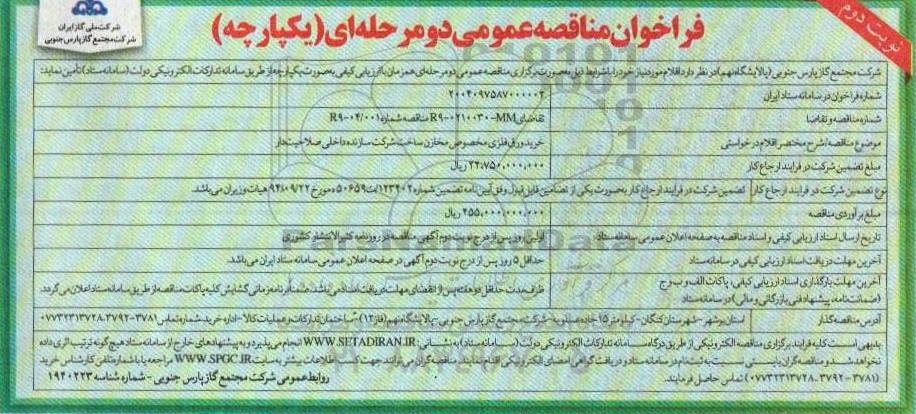 شرکت ملی گاز ایران
شرکت مجتمع گاز پارس جنوبی
نوبت دوم
فراخوان مناقصه عمومی دو مرحله‌ای (یکپارچه)
شرکت مجتمع گاز پارس جنوبی (پالایشگاه نهم) در نظر دارد اقلام مورد نیاز خود را با شرایط ذیل به صورت برگزاری مناقصه عمومی دو مرحله‌ای همزمان با ارزیابی کیفی به صورت یکپارچه از طریق سامانه تدارکات الکترونیکی دولت (سامانه ستاد) تأمین نماید:
شماره فراخوان در سامانه ستاد ایران
۲۰۰۴۰۹۷۵۸۷۰۰۰۰۰۲
شماره مناقصه و تقاضا
تقاضای R9-0210030-MM مناقصه شماره R9-04/001
موضوع مناقصه/شرح مختصر اقلام درخواستی
خرید ورق فلزی مخصوص مخازن ساخت شرکت سازنده داخلی صلاحیت‌دار
مبلغ تضمین شرکت در فرایند ارجاع کار
۲۲,۷۵۰,۰۰۰,۰۰۰ ریال
نوع تضمین شرکت در فرایند ارجاع کار
تضمین شرکت در فرآیند ارجاع کار به صورت یکی از تضامین قابل قبول وفق آیین‌نامه تضمین شماره ۱۲۳۴۰۲/ت۵۰۶۵۹ه مورخ ۹۴/۰۹/۲۲ هیات وزیران می‌باشد.
مبلغ برآوردی مناقصه
۴۵۵,۰۰۰,۰۰۰,۰۰۰ ریال
تاریخ ارسال اسناد ارزیابی کیفی و اسناد مناقصه به صفحه اعلان عمومی سامانه ستاد
اولین روز پس از درج نوبت دوم آگهی مناقصه در روزنامه کثیرالانتشار کشوری
آخرین مهلت دریافت اسناد ارزیابی کیفی در سامانه ستاد
حداقل ۵ روز پس از درج نوبت دوم آگهی در صفحه اعلان عمومی سامانه ستاد ایران می‌باشد.
آخرین مهلت بارگذاری اسناد ارزیابی کیفی، پاکات الف و ب و ج
(ضمانت‌نامه، پیشنهاد فنی بازرگانی و مالی) در سامانه ستاد
ظرف مدت حداقل دو هفته پس از انقضای مهلت دریافت اسناد می‌باشد. ضمناً برنامه زمانی گشایش کلیه پاکات مناقصه از طریق سامانه ستاد اعلان می‌گردد.
آدرس مناقصه‌گذار
استان بوشهر - شهرستان کنگان - کیلومتر ۱۵ جاده عسلویه - شرکت مجتمع گاز پارس جنوبی - پالایشگاه نهم (فاز۱۲) - ساختمان تدارکات و عملیات کالا - اداره خرید، شماره تماس ۳۷۸۱-۳۷۹۲-۰۷۷۳۲۳۱۳۷۲۸
بدیهی است کلیه فرایند برگزاری مناقصه الکترونیکی از طریق درگاه سامانه تدارکات الکترونیکی دولت (سامانه ستاد) به نشانی: WWW.SETADIRAN.IR انجام می‌پذیرد و به پیشنهادهای خارج از سامانه ستاد هیچ‌گونه ترتیب اثری داده
نخواهد شد و مناقصه‌گران بایستی نسبت به ثبت‌نام در سامانه ستاد و دریافت گواهی امضای الکترونیکی اقدام نمایند. مناقصه‌گران می‌توانند جهت کسب اطلاعات بیشتر به سایت WWW.SPGC.IR مراجعه یا با شماره تلفن کارشناس خرید
(۳۷۸۱ - ۳۷۹۲ - ۰۷۷۳۲۳۱۳۷۲۸) تماس حاصل فرمایند.
روابط عمومی شرکت مجتمع گاز پارس جنوبی - شماره شناسه ۱۹۴۰۲۲۳